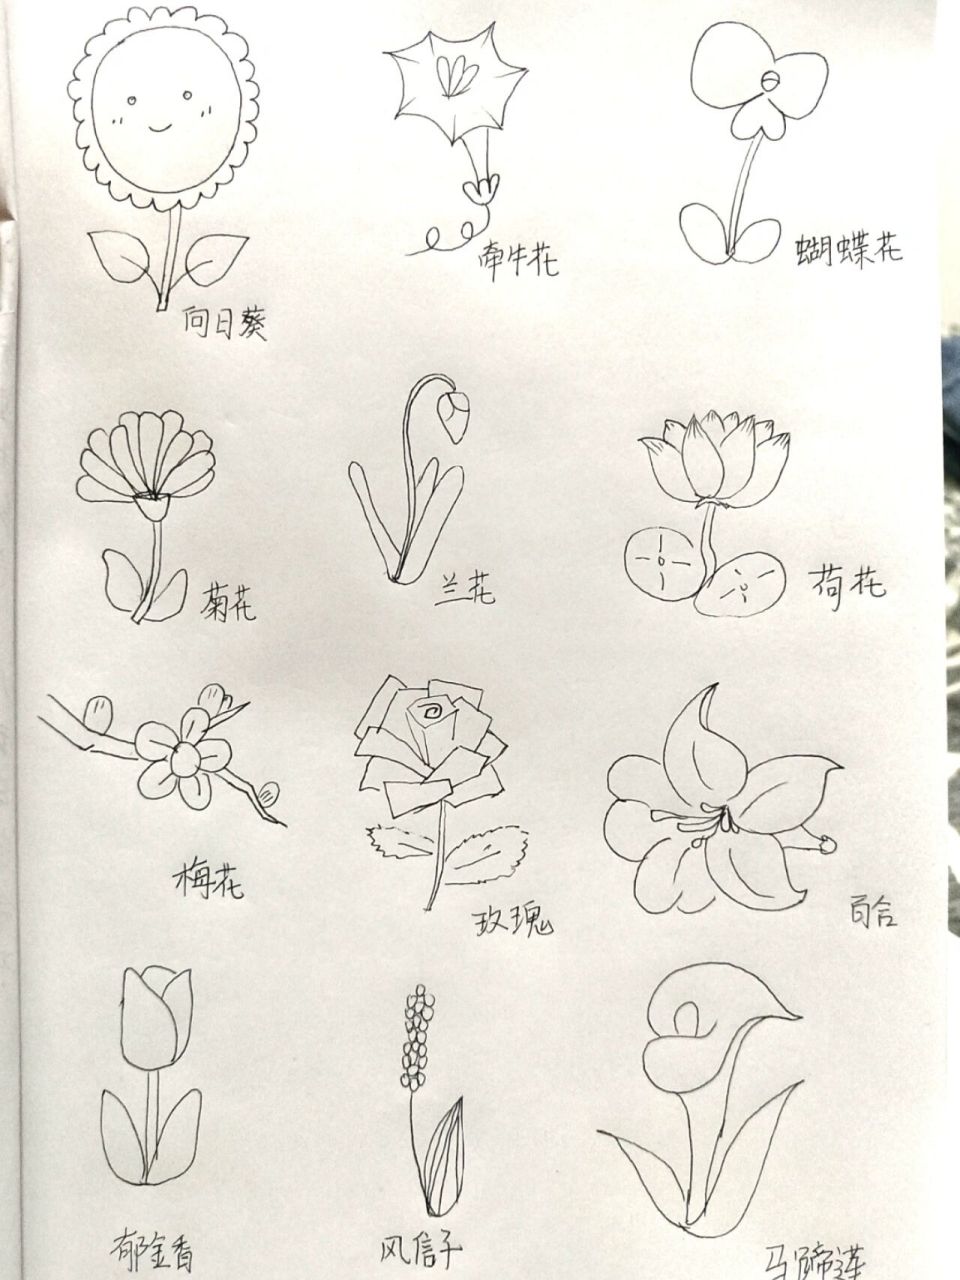 牵牛花
蝴蝶花
向日葵
菊花
兰花
荷花
梅花
玫瑰
百合
郁金香
风信子
马蹄莲